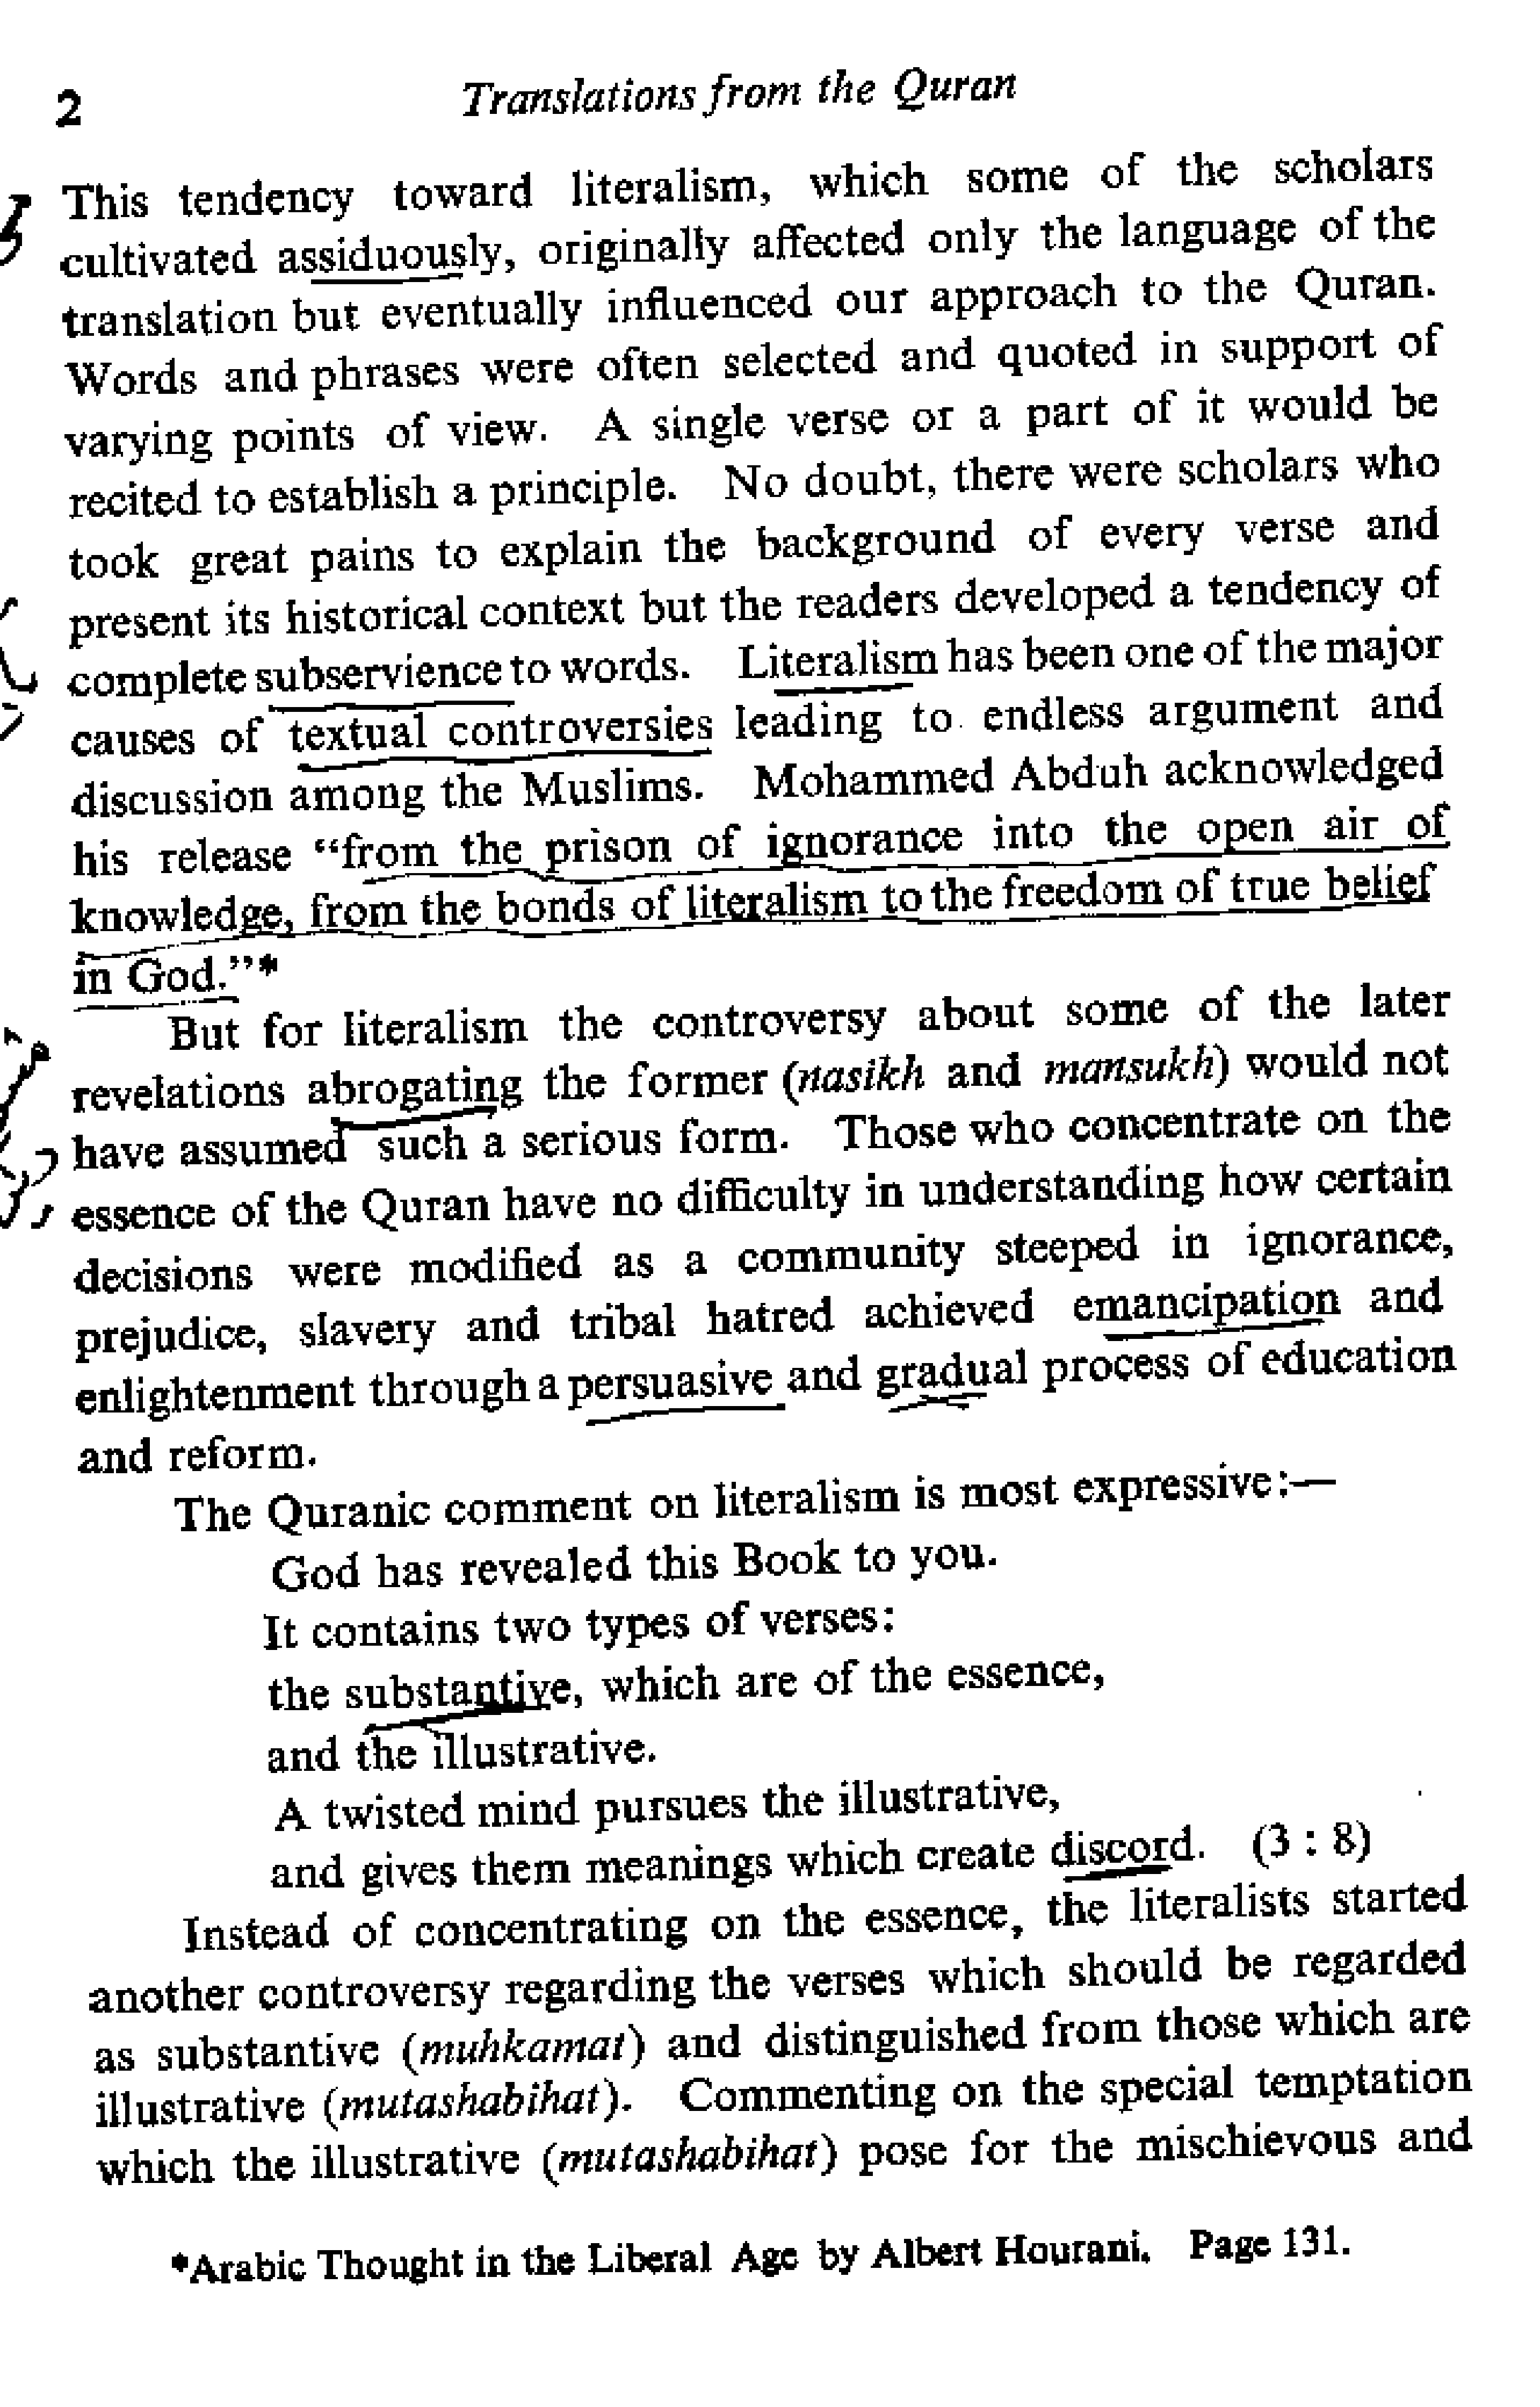 2
Translations from the Quran
This tendency toward literalism, which some of the scholars
cultivated assiduously, originally affected only the language of the
translation but eventually influenced our approach to the Quran.
Words and phrases were often selected and quoted in support of
varying points of view. A single verse or a part of it would be
recited to establish a principle. No doubt, there were scholars who
took great pains to explain the background of every verse and
present its historical context but the readers developed a tendency of
complete subservience to words. Literalism has been one of the major
causes of textual controversies leading to endless argument and
discussion among the Muslims. Mohammed Abduh acknowledged
his release “from the prison of ignorance into the open air of
knowledge, from the bonds of literalism to the freedom of true belief
in God.”*
But for literalism the controversy about some of the later
revelations abrogating the former (nasikh and mansukh) would not
have assumed such a serious form. Those who concentrate on the
essence of the Quran have no difficulty in understanding how certain
decisions were modified as a community steeped in ignorance,
prejudice, slavery and tribal hatred achieved emancipation and
enlightenment through a persuasive and gradual process of education
and reform.
The Quranic comment on literalism is most expressive:—
God has revealed this Book to you.
It contains two types of verses:
the substantive, which are of the essence,
and the illustrative.
A twisted mind pursues the illustrative,
and gives them meanings which create discord. (3 : 8)
Instead of concentrating on the essence, the literalists started
another controversy regarding the verses which should be regarded
as substantive (muhkamat) and distinguished from those which are
illustrative (mutashabihat). Commenting on the special temptation
which the illustrative (mutashabihat) pose for the mischievous and
*Arabic Thought in the Liberal Age by Albert Hourani. Page 131.